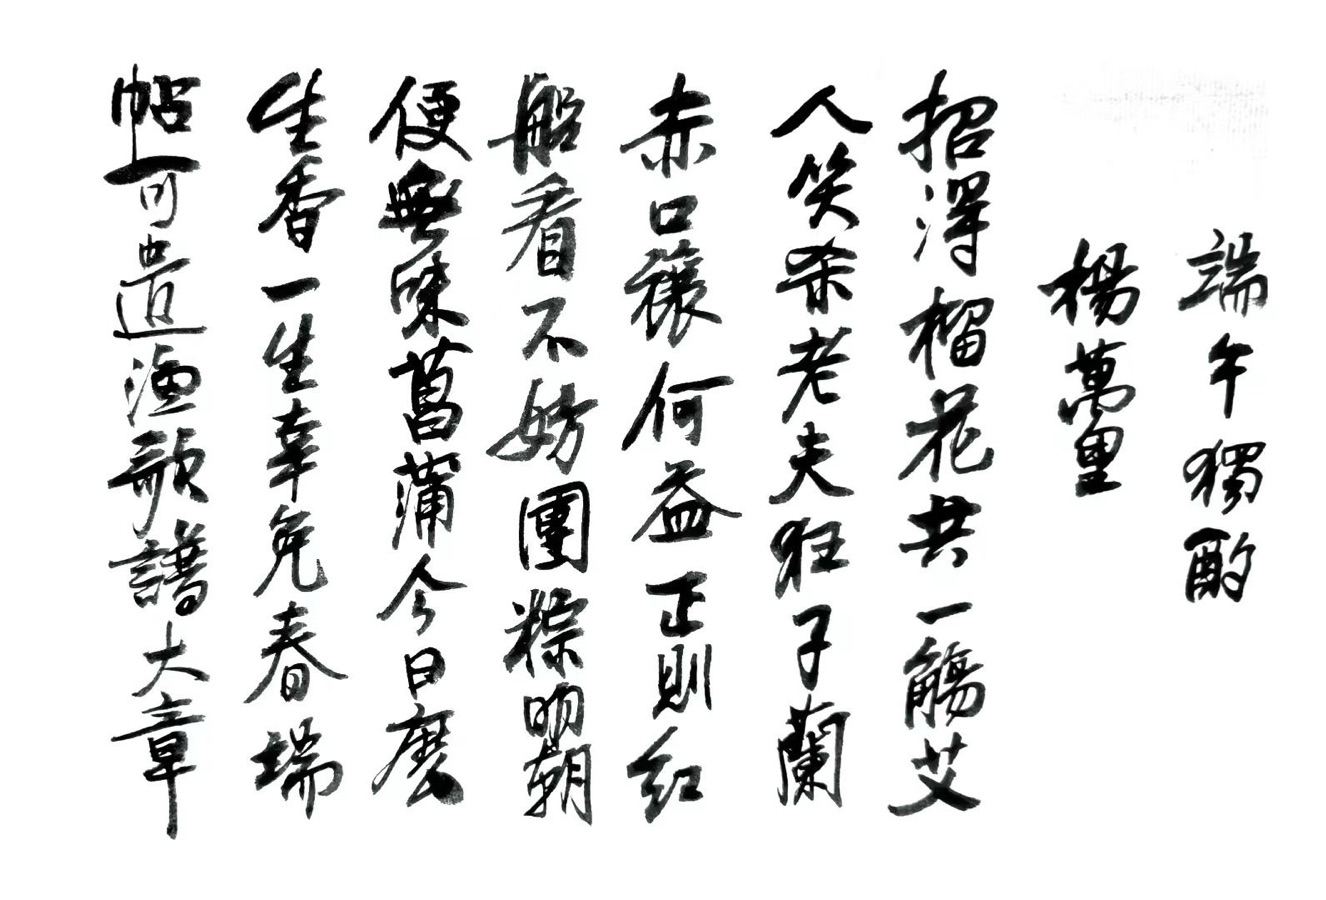 端午獨酌
楊萬里
招得榴花共一觴艾
人笑殺老夫狂子蘭
赤口禳何益正則紅
船看不妨團粽明朝
便無味菖蒲今日麼
生香一生幸免春端
帖可遣漁歌譜大章